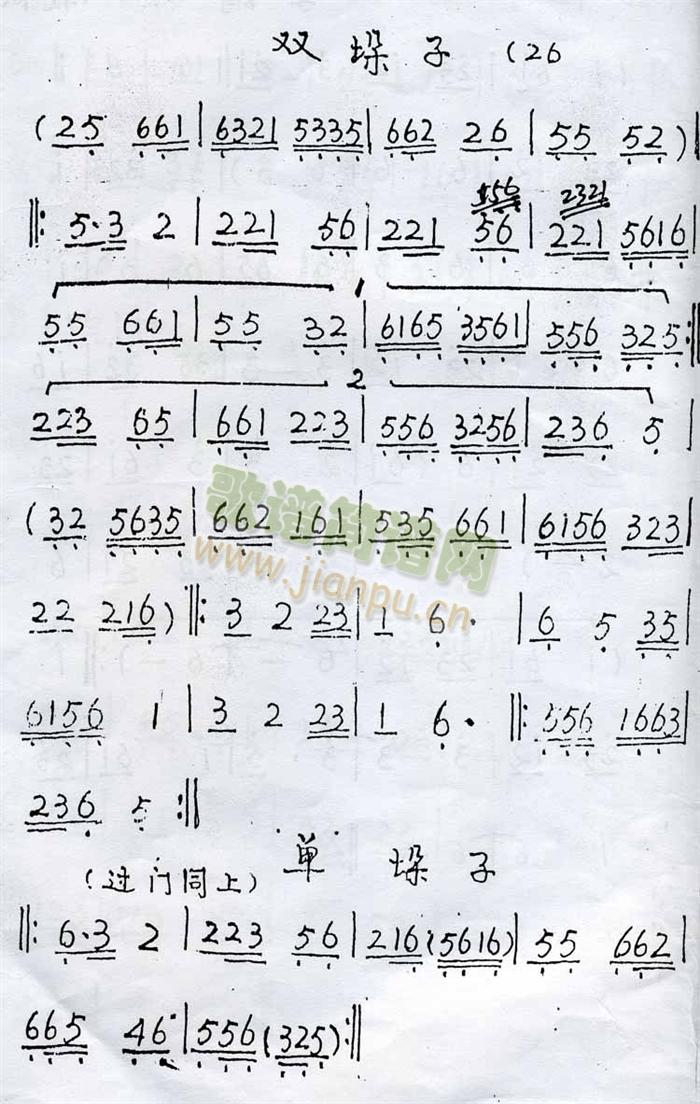 双垛子 (26
(25 661 | 6321 5335 | 662 26 | 55 52) |
156 2321
‖: 5·3 2 | 221 56 | 221 56 | 221 5616 |
1
55 661 | 55 32 | 6165 3561 | 556 325 :‖
2
223 65 | 661 223 | 556 3256 | 236 5 |
(32 5635 | 662 161 | 535 661 | 6156 323 |
22 216) ‖: 3 2 23 | 1 6· | 6 5 35 |
6156 1 | 3 2 23 | 1 6· ‖: 556 1663 |
236 5 :‖
单垛子
(过门同上)
‖: 6·3 2 | 223 56 | 216 (5616) | 55 662 |
665 46 | 556 (325) :‖
歌谱简谱网
www.jianpu.cn